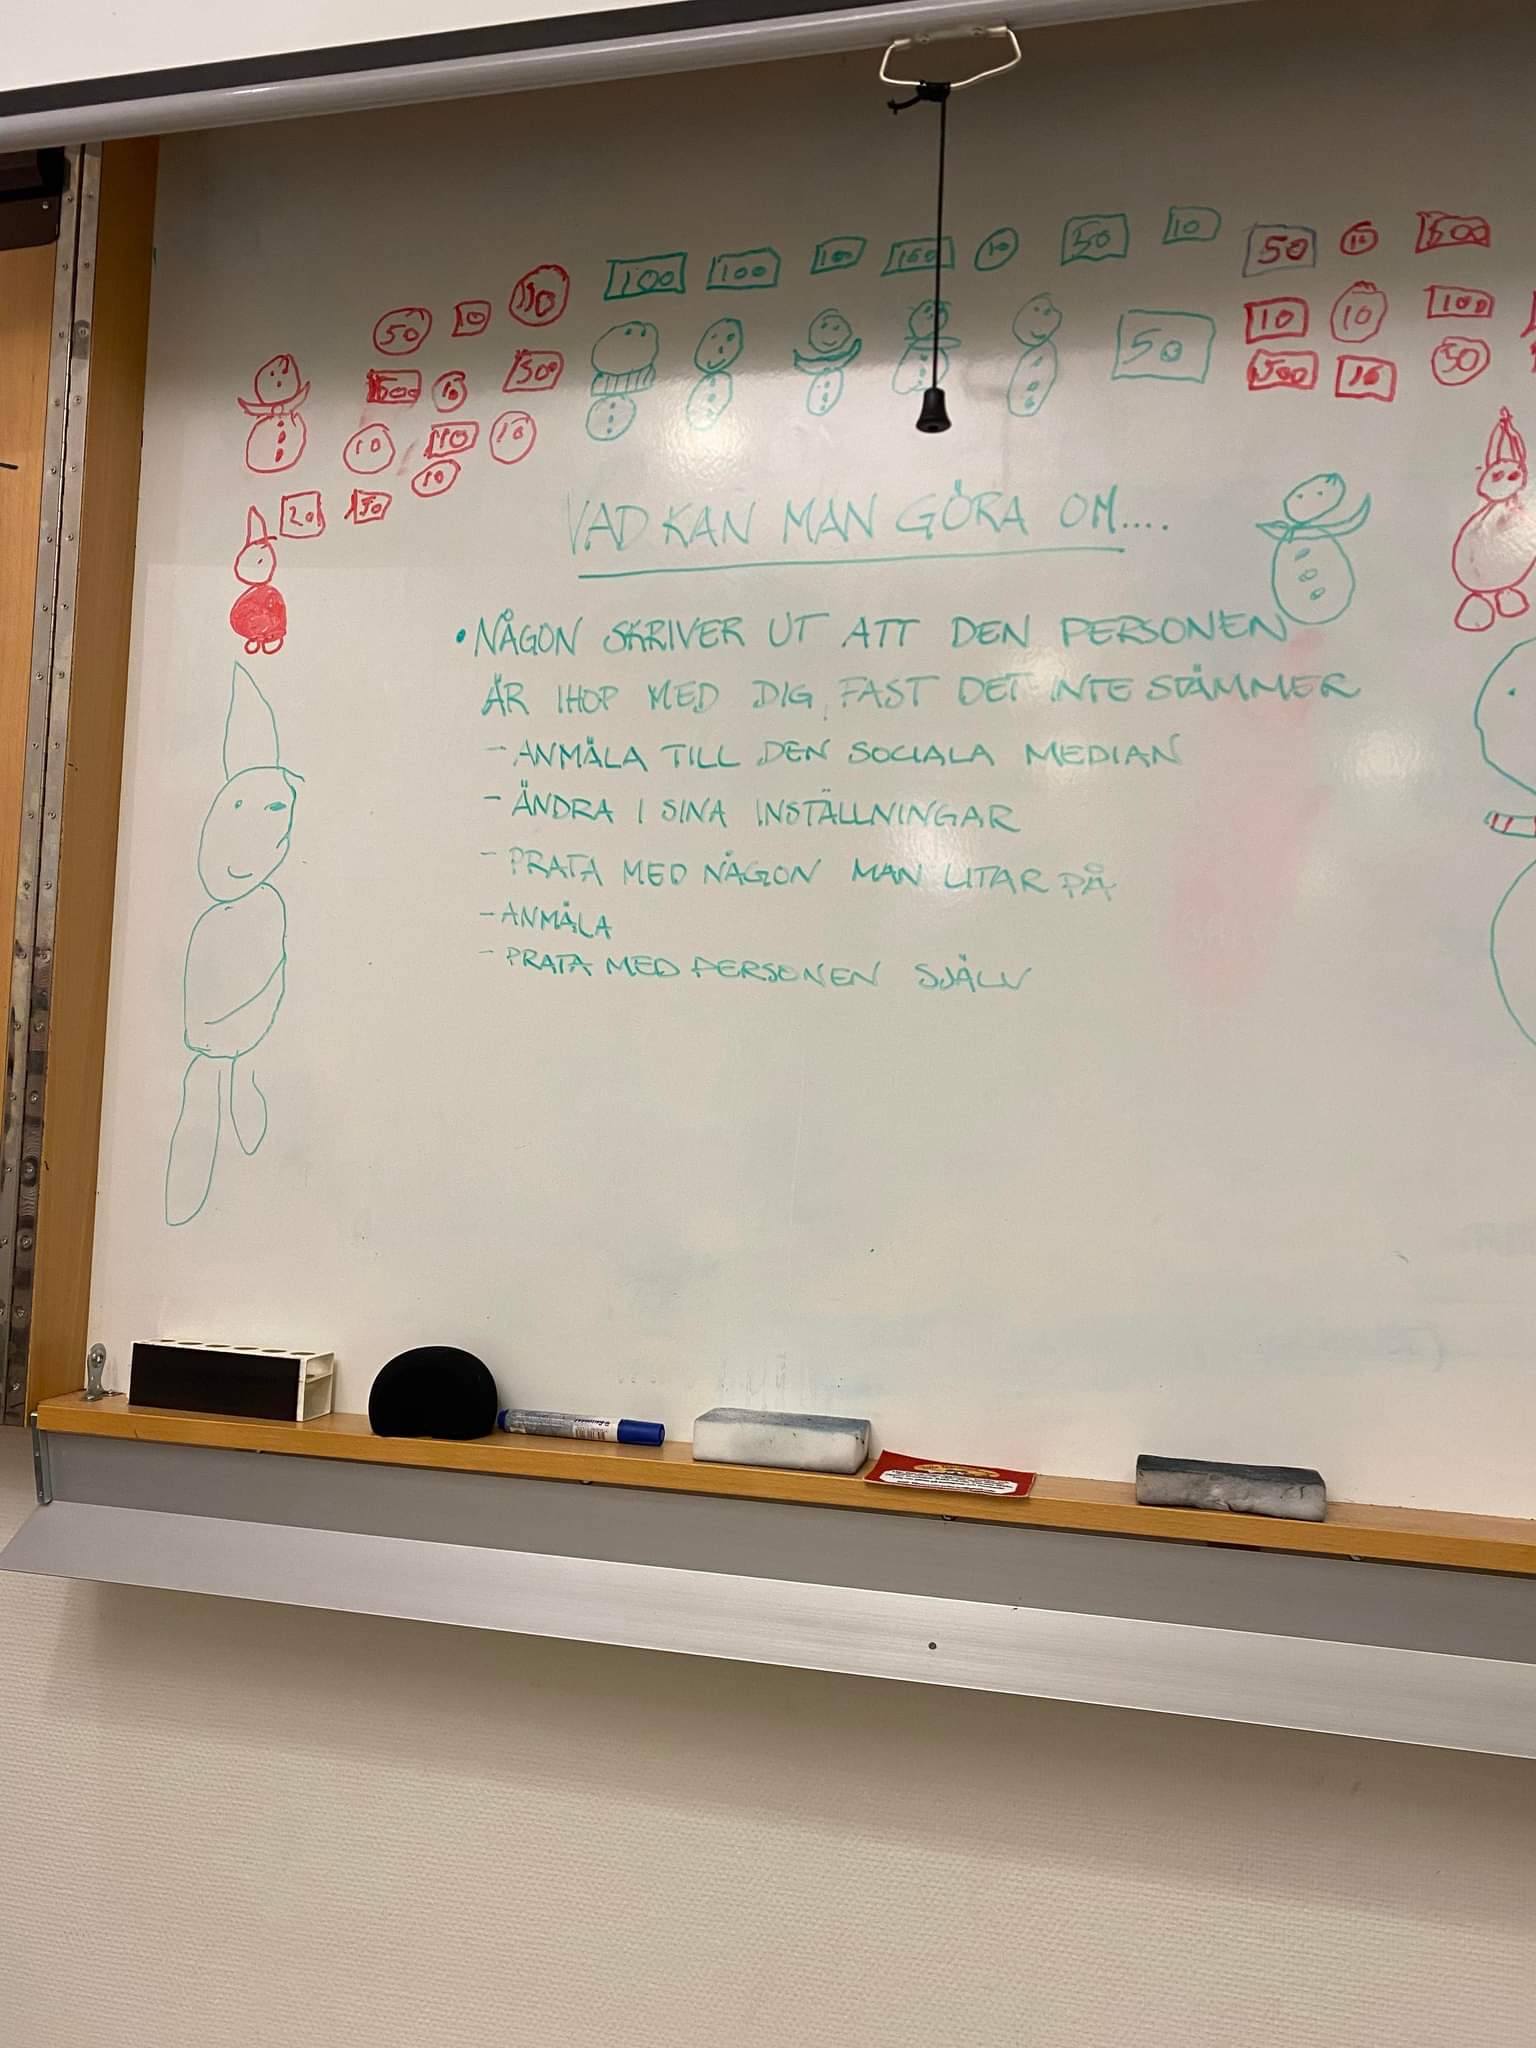 100 100 100 100 10 50 10 50 10 500
50 10 50
500 10 500 50 10 10 100
500 10 50
10 10 10
10
20 50
VAD KAN MAN GÖRA OM....
• NÅGON SKRIVER UT ATT DEN PERSONEN
ÄR IHOP MED DIG, FAST DET INTE STÄMMER
- ANMÄLA TILL DEN SOCIALA MEDIAN
- ÄNDRA I SINA INSTÄLLNINGAR
- PRATA MED NÅGON MAN LITAR PÅ
- ANMÄLA
- PRATA MED PERSONEN SJÄLV